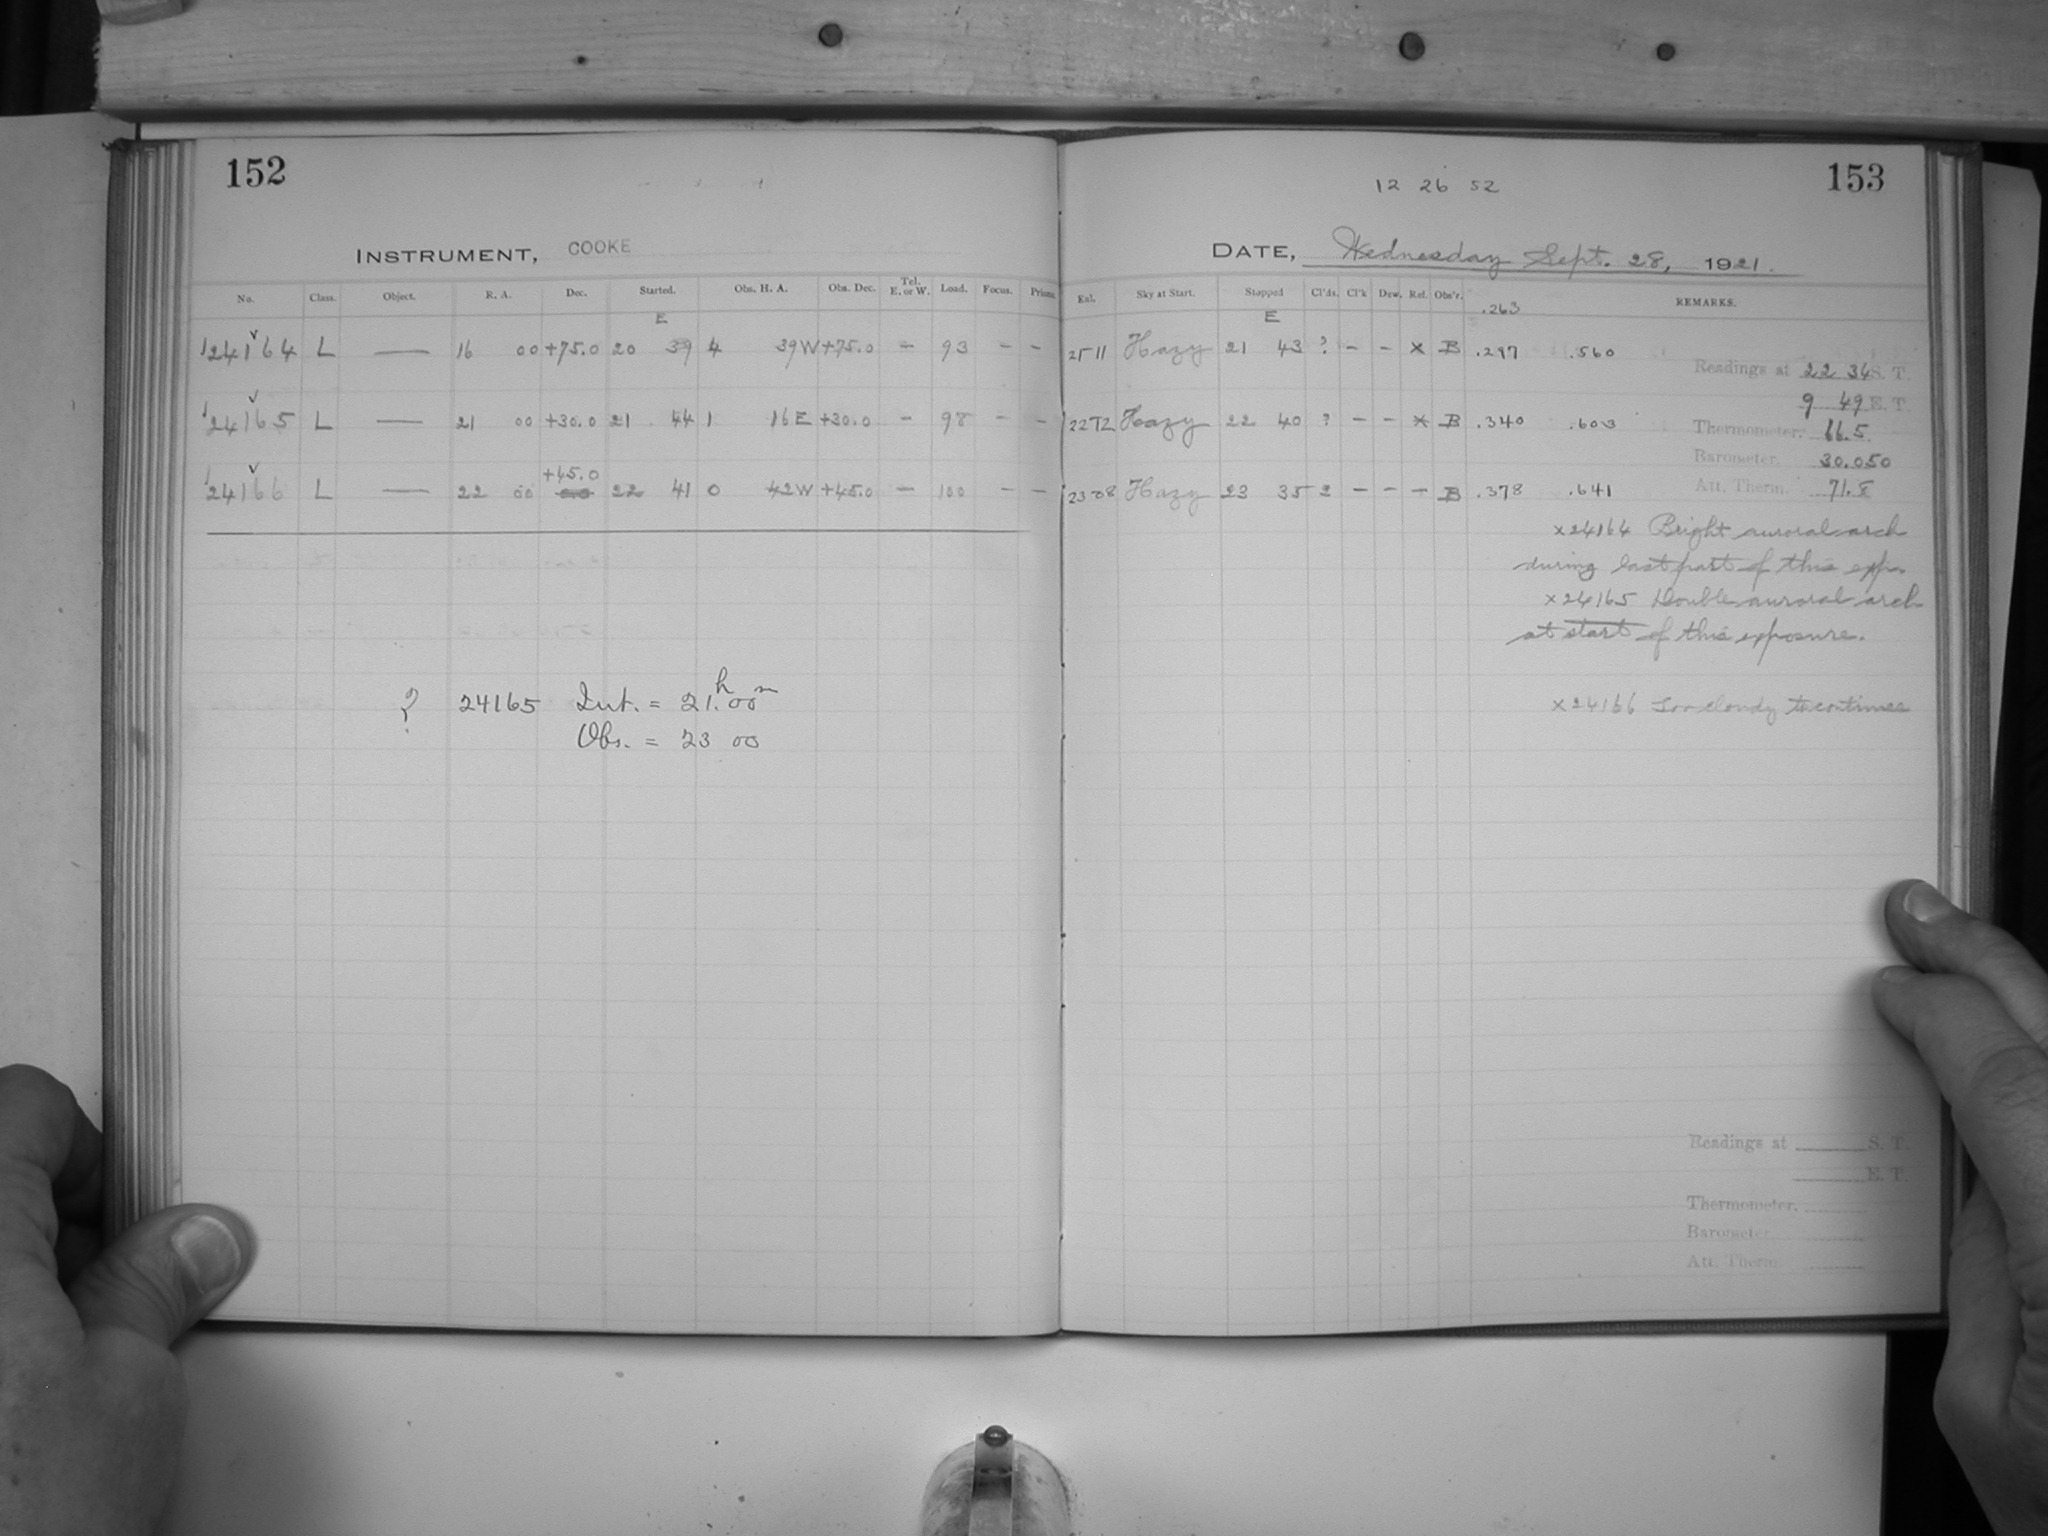 152
INSTRUMENT, COOKE
No. Class. Object. R. A. Dec. Started. Obs. H. A. Obs. Dec. Tel. E. or W. Load. Focus. Prism.
E
24164 L — 16 00 +75.0 20 39 4 39W +75.0 – 93 – –
24165 L — 21 00 +30.0 21 44 1 16E +30.0 – 98 – –
+45.0
24166 L — 22 00 22 41 0 42W +45.0 – 100 – –
? 24165 Int. = 21h. 00m
Obs. = 23 00
12 26 52
153
DATE, Wednesday Sept. 28, 1921.
Sky at Start. Stopped Cl'ds. Cl'k Dew. Ref. Obs'r. REMARKS.
E .263
Hazy 21 43 ? – – x B .297 .560
Readings at 22 34 S. T.
9 49 E. T.
Hazy 22 40 ? – – x B .340 .603
Thermometer. 66.5
Barometer. 30.050
Hazy 23 35 2 – – – B .378 .641
Att. Therm. 71.8
x24164 Bright auroral arch
during last part of this expo.
x24165 Double auroral arch
at start of this exposure.
x24166 Too cloudy to continue
Readings at S. T.
E. T.
Thermometer.
Barometer
Att. Therm.